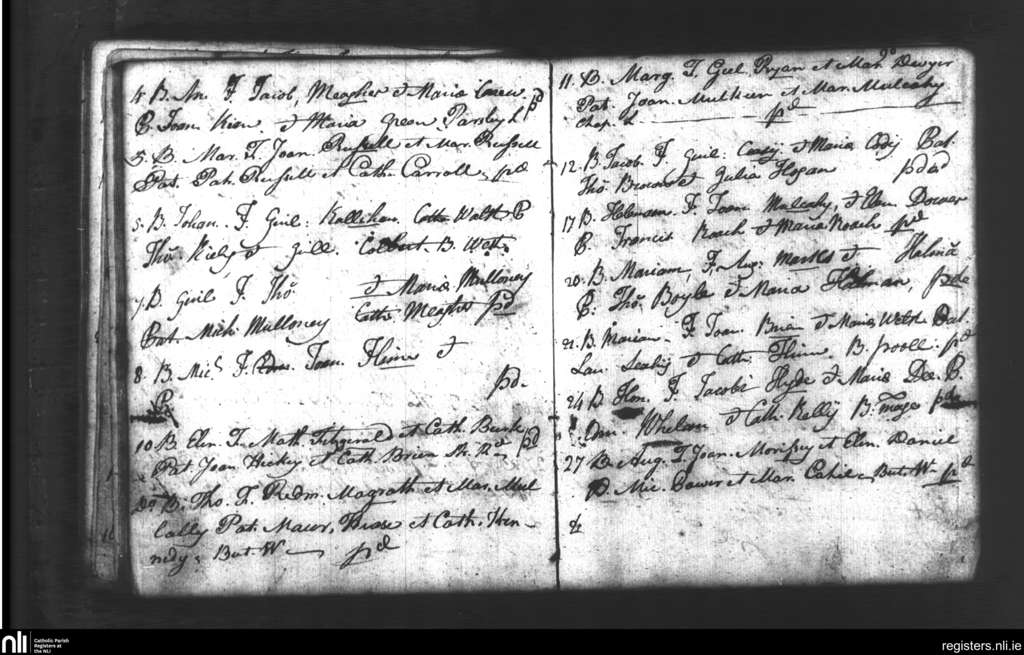 4. B. An. F. Jacob, Meagher & Maria Carew pd
P. Joan. Kien & Maria Green. Parsley L
5. B. Mar. F. Joan. Russell et Mar. Russell
Pat. Pat. Russell et Cath. Carroll, pd
5. B. Johan. F. Guil: Kallihan. Cath Walsh P
Thos. Kiely & Colbert B.
7. B. Guil F. Thos. & Maria Mulloney
Pat. Mich Mulloney Cath Meagher pd
8. B. Mich F. Joan. Flinn &
P. pd.
10 B Elen. F. Math. Fitzgerald et Cath. Burke
Pat. Joan Hickey et Cath. Brien pd
Do B. Tho. F. Redm. Magrath et Mar. Mul
cally Pat. et Cath. Hen-
nedy, But. W — pd
11. B. Marg. F. Guil. Ryan et Mar. Dwyer
Pat. Joan. Mulkier et Mar. Mulcahy
Chap. L — pd
12. B. Jacob. F. Guil: Casey & Maria Cody Pat.
Tho Brown et Julia Hogan pd
17 B. F. Joan Mulcahy, & Elen Dower
P. Francis Roach & Maria Roach pd
20. B. Mariam, F. Aug. Markes &
P. Tho. Boyle & Maria pd
21. B. Mariam. F. Joan Brien & Maria Welsh Pat.
Lau. & Cath. Flinn. B. pd
24 B Hon. F. Jacobi Hyde & Maria Dee. P.
Edm. Whelan & Cath. Kelly B.
27 B. Aug. F. Joan. Morissey et Elen. Daniel
P. Mic. Power et Mar. Cahil — But. W — pd
&
nli
Catholic Parish
Registers at
the NLI
registers.nli.ie